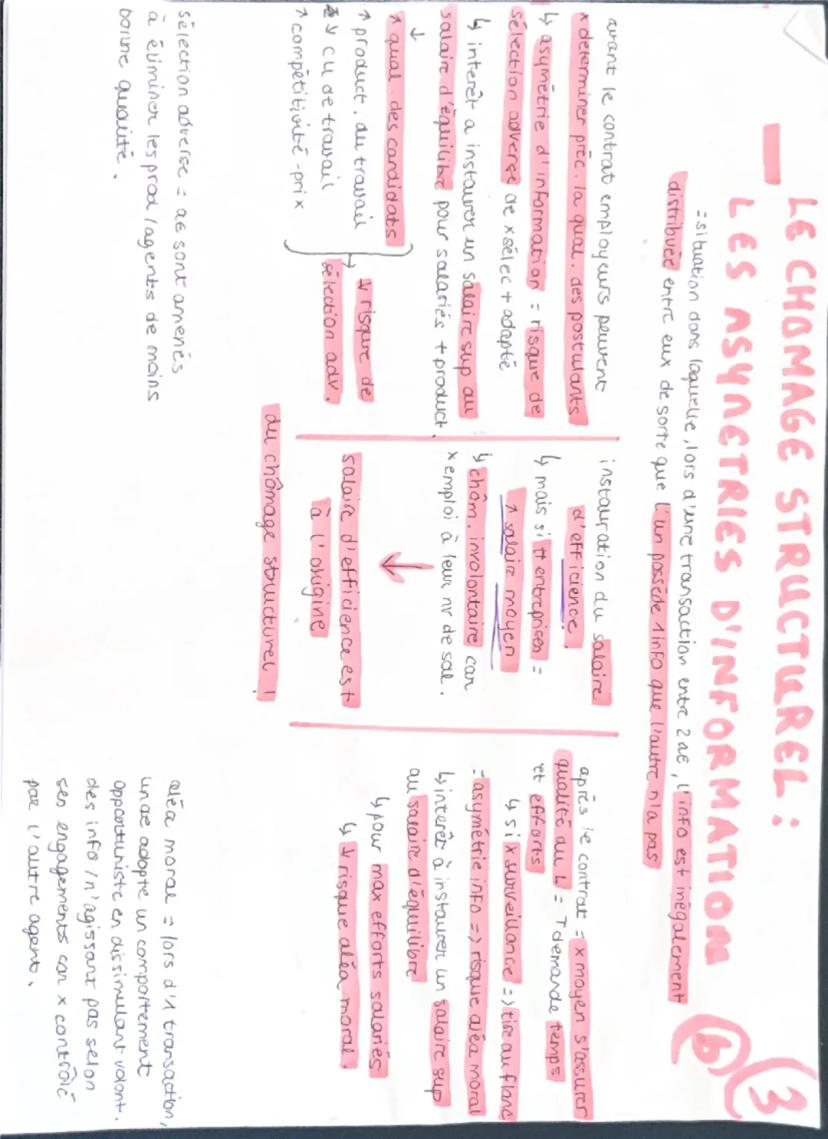 LE CHOMAGE STRUCTUREL :
LES ASYMETRIES D'INFORMATION
3
b
= situation dans laquelle, lors d'une transaction entre 2 ae, l'info est inégalement
distribuée entre eux de sorte que l'un possède 1 info que l'autre n'a pas
avant le contrat employeurs peuvent
x determiner préc. la qual. des postulants
↳ asymétrie d'information = risque de
sélection adverse de x sélec + adapté
↳ interêt a instaurer un salaire sup au
salaire d'équilibre pour salariés + product.
↓
↗ qual. des candidats
↗ product. du travail
↓ CU de travail
↗ compétitivité-prix
→ ↓ risque de
sélection adv.
sélection adverse = ae sont amenés
à éliminer les prod / agents de moins
bonne qualité.
instauration du salaire
d'efficience.
↳ mais si tt entreprises =
↗ salaire moyen
↳ chôm. involontaire car
x emploi à leur nv de sal.
↓
salaire d'efficience est
à l'origine
du chômage structurel !
après le contrat = x moyen s'assurer
qualité du L = T demande temps
et efforts
↳ si x surveillance => tire au flanc
= asymétrie info => risque aléa moral
↳ interêt à instaurer un salaire sup
au salaire d'équilibre
↳ pour max efforts salariés
↳ ↓ risque aléa moral.
aléa moral = lors d'1 transaction,
un ae adopte un comportement
opportuniste en dissimulant volont.
des info / n'agissant pas selon
ses engagements car x contrôlé
par l'autre agent.